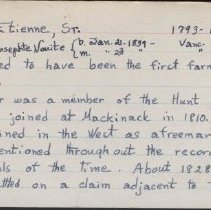 Etienne, St. 1793-
Josephte Nouite { b. Jan. 21-1839 - Vanc.
m. " 23 " "
ed to have been the first farm
r was a member of the Hunt
joined at Mackinack in 1810.
ined in the West as a freeman
entioned throughout the recor
ls of the time. About 1828
ttled on a claim adjacent to